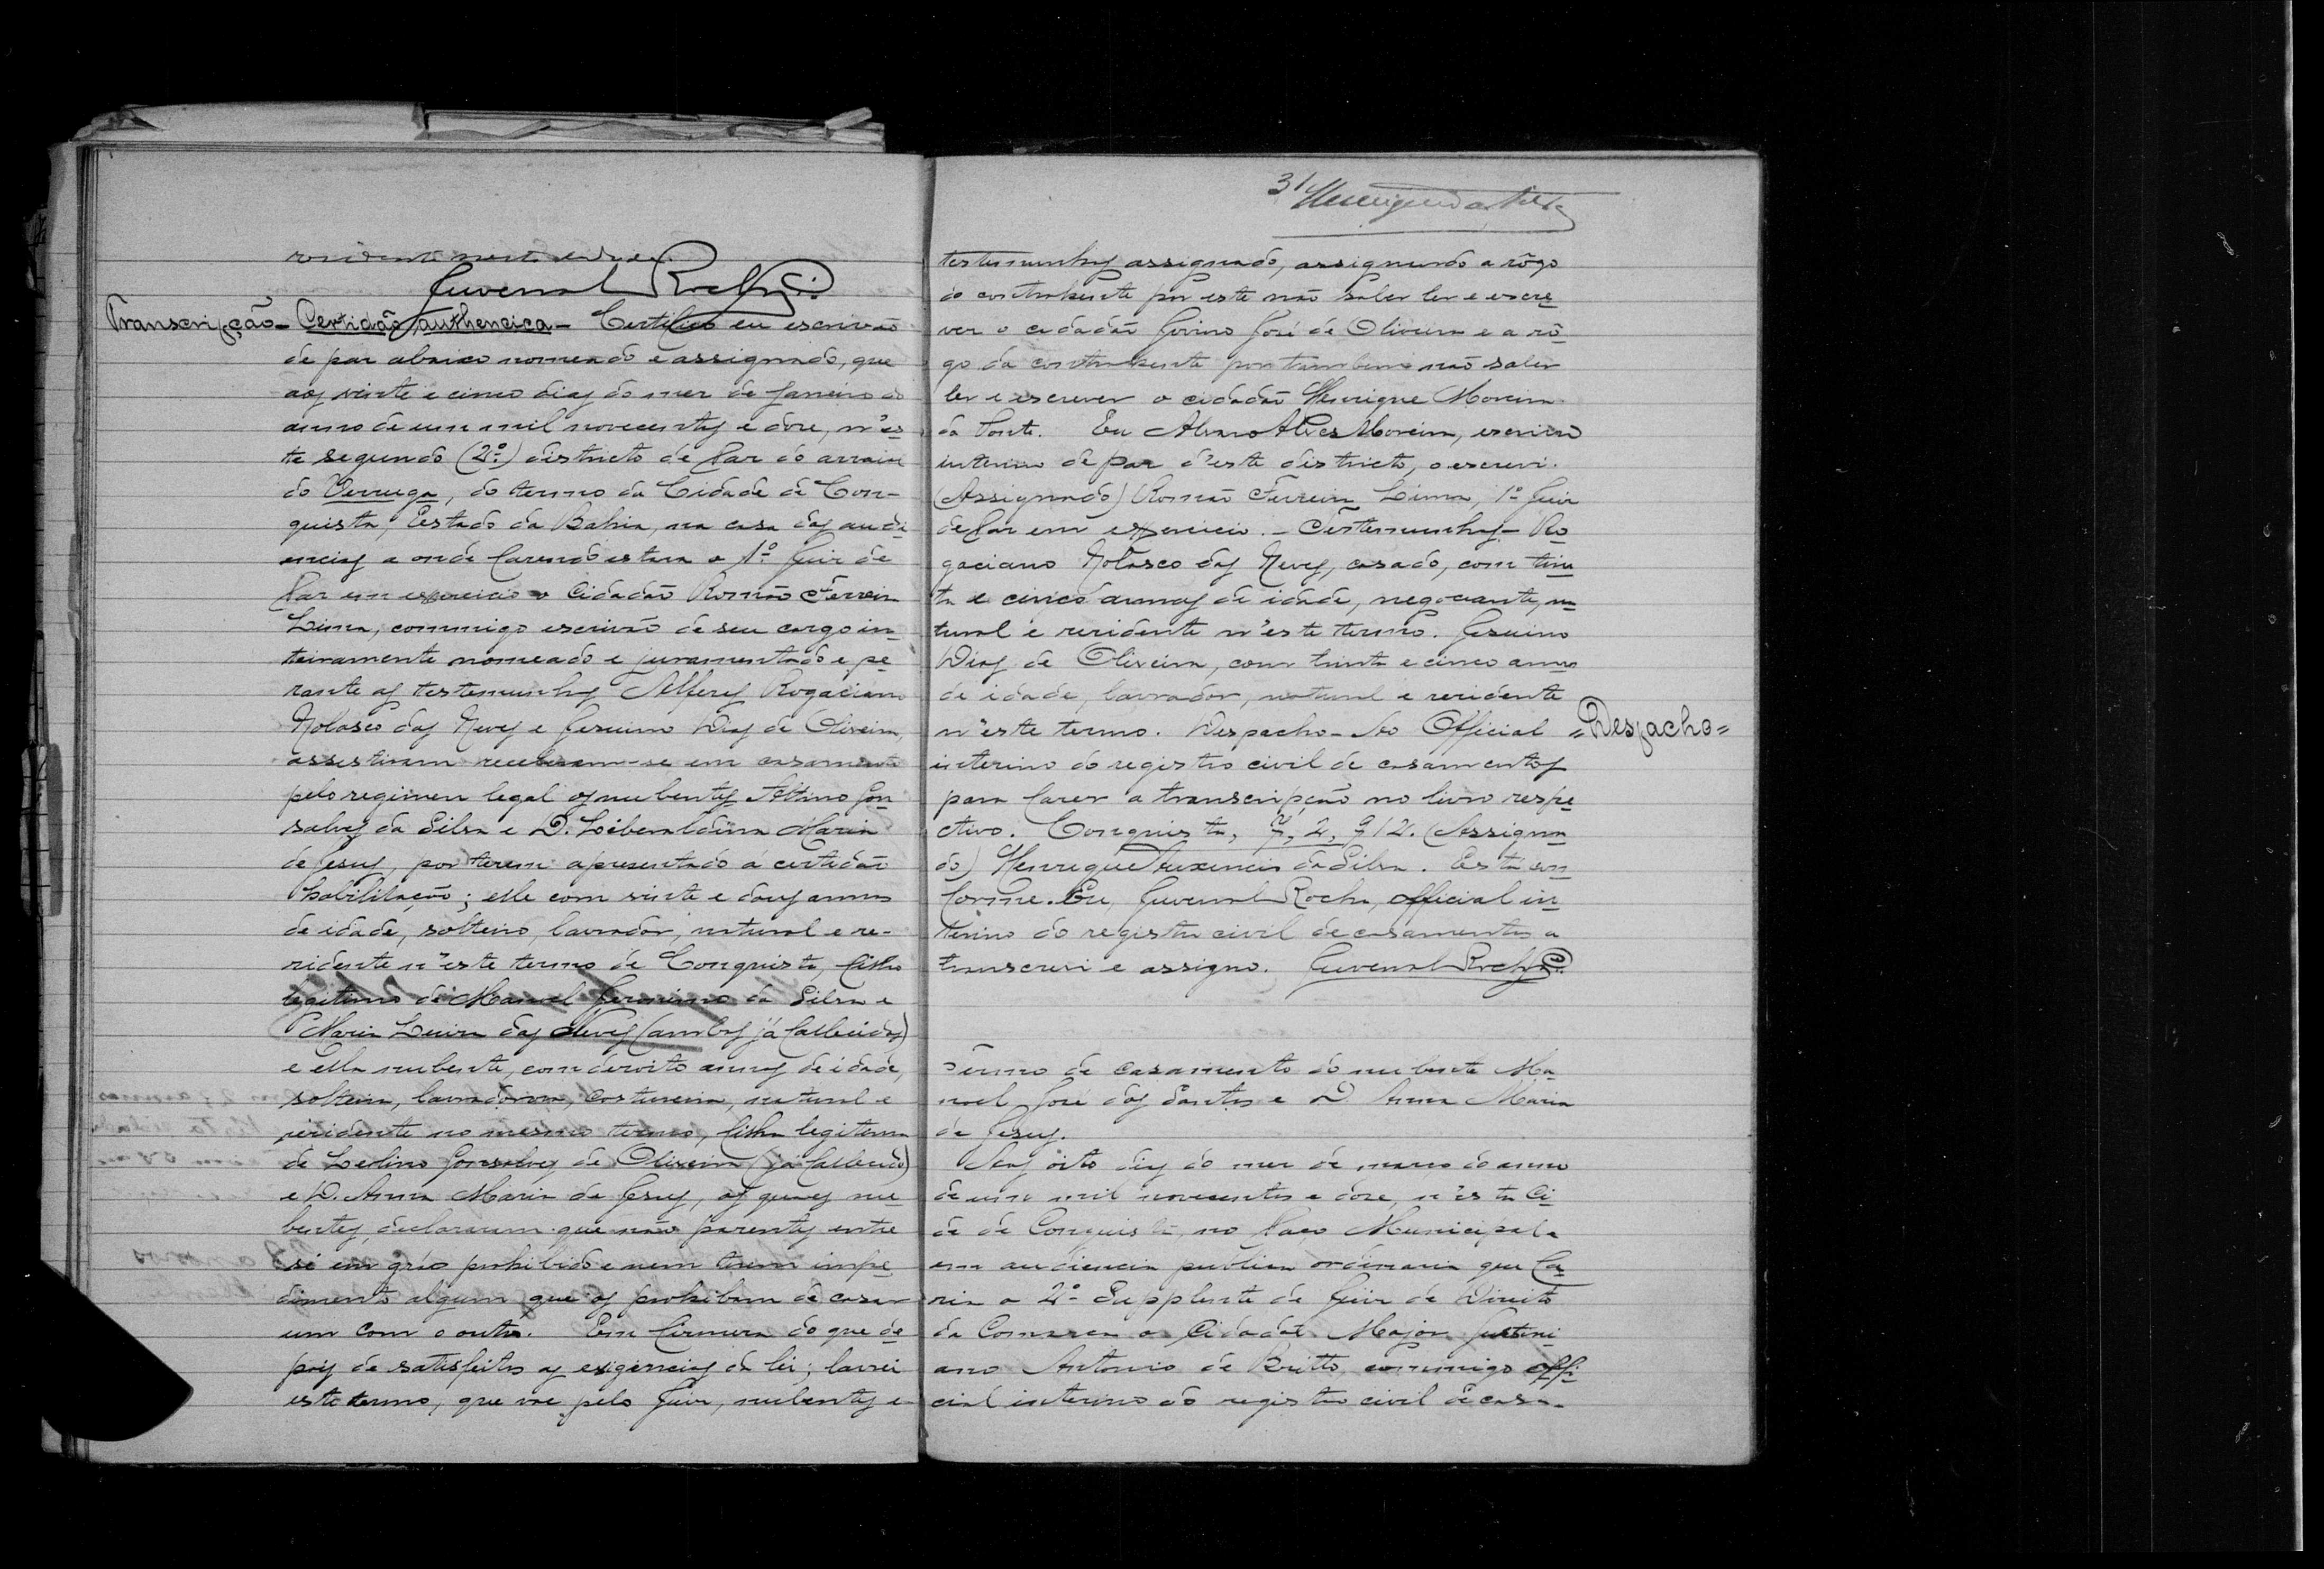 residente nesta cidade.
Juvenal Rocha
Transcripção - Certidão authencica - Certifico eu escrivão
de paz abaixo nomeado e assignado, que
aos vinte e cinco dias do mez de Janeiro do
anno de um mil novecentos e doze, n'es-
te segundo (2º) districto de Paz do arraial
do Verruga, do termo da Cidade de Con-
quista, Estado da Bahia, na casa das audi-
encias a onde fazendo estava o 1º Juiz de
Paz em exercicio o Cidadão Romão Ferreira
Lima, commigo escrivão de seu cargo in-
teiramente nomeado e juramentado e pe-
rante as testemunhas Alferes Rogaciano
Nolasco das Neves e Jesuino Dias de Oliveira,
assestiram receberam-se em casamento
pelo regimen legal os nubentes Altino Gon
salves da Silva e D. Liberaldina Maria
de Jesus, por terem apresentado á certidão
habilitação; elle com vinte e dous annos
de idade, solteiro, lavrador, natural e re-
zidente n'este termo de Conquista, filho
legitimo de Manoel Jeronimo da Silva e
Maria Luiza das Neves (ambos já fallecidos)
e ella nubente, com dezoito annos de idade,
solteira, lavradora, costureira, natural e
rezidente no mesmo termo, filha legitima
de Leolino Gonsalves de Oliveira (já fallecido)
e D. Anna Maria de Jesus, os quaes nu
bentes, declararam que não parentes entre
si em gráo prohibido e nem terem impe
dimento algum que os prohibam de casar
um com o outro. Em firmeza do que de
pois de satisfeitos as exigencias da lei; lavrei
este termo, que vae pelo Juiz, nubentes e
31
testemunhas assignado, assignando a rôgo
do contrahente por este não saber ler e escre
ver o cidadão Jovino José de Oliveira e a rô
go da contrahente por tambem não saber
ler e escrever o cidadão Henrique Moreira
da Ponte. Eu Alvaro Alves Moreira, escrivão
interino de paz d'este districto, o escrevi.
(Assignado) Romão Ferreira Lima, 1º Juiz
de Paz em exercicio. - Testemunhas - Ro
gaciano Nolasco das Neves, casado, com trin
ta e cinco annos de idade, negociante, na
tural e rezidente n'este termo. Jesuino
Dias de Oliveira, com trinta e cinco annos
de idade, lavrador, natural e rezidente
n'este termo. Despacho - Ao Official = Despacho =
interino do registro civil de casamentos
para fazer a transcripção no livro respe
ctivo. Conquista, 7, 2, 912. (Assigna
do) Henrique Auxencio da Silva. Está con
forme. Eu, Juvenal Rocha, official in
terino do registro civil de casamentos a
transcrevi e assigno. Juvenal Rocha
Termo de casamento do nubente Ma
noel José dos Santos e D. Anna Maria
de Jesus.
Aos oito dias do mez de março do anno
de um mil novecentos e doze, n'esta Ci
da de Conquista, no Paço Municipal
em audiencia publica ordinaria que fa
zia o 2º Supplente de Juiz de Direito
da Comarca o Cidadão Major Justini
ano Antonio de Britto, commigo offi
cial interino do registro civil de casa-